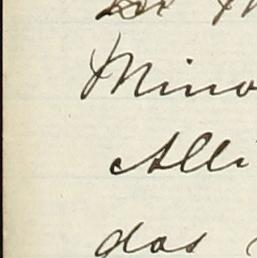 Mino
Alli
das